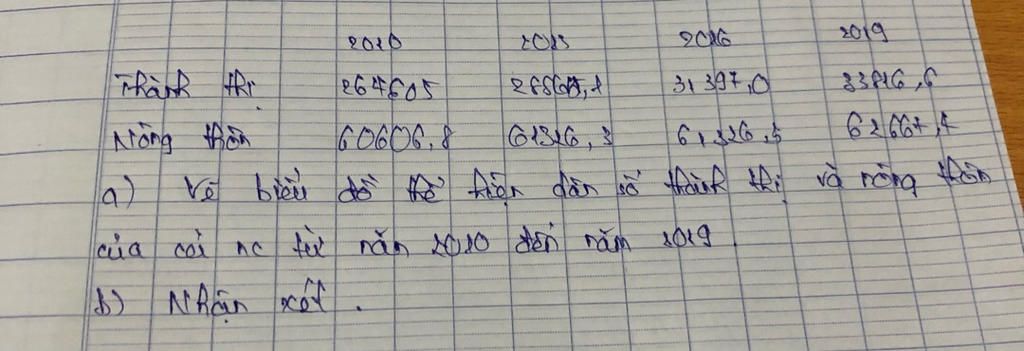 2010 2013 2016 2019
Thành thị 264605 31397,0 33816,6
Nông thôn 60606,8 61316,3 61326,5 62667,4
a) Vẽ biểu đồ thể hiện dân số thành thị và nông thôn
của cả nc từ năm 2010 đến năm 2019
b) Nhận xét.